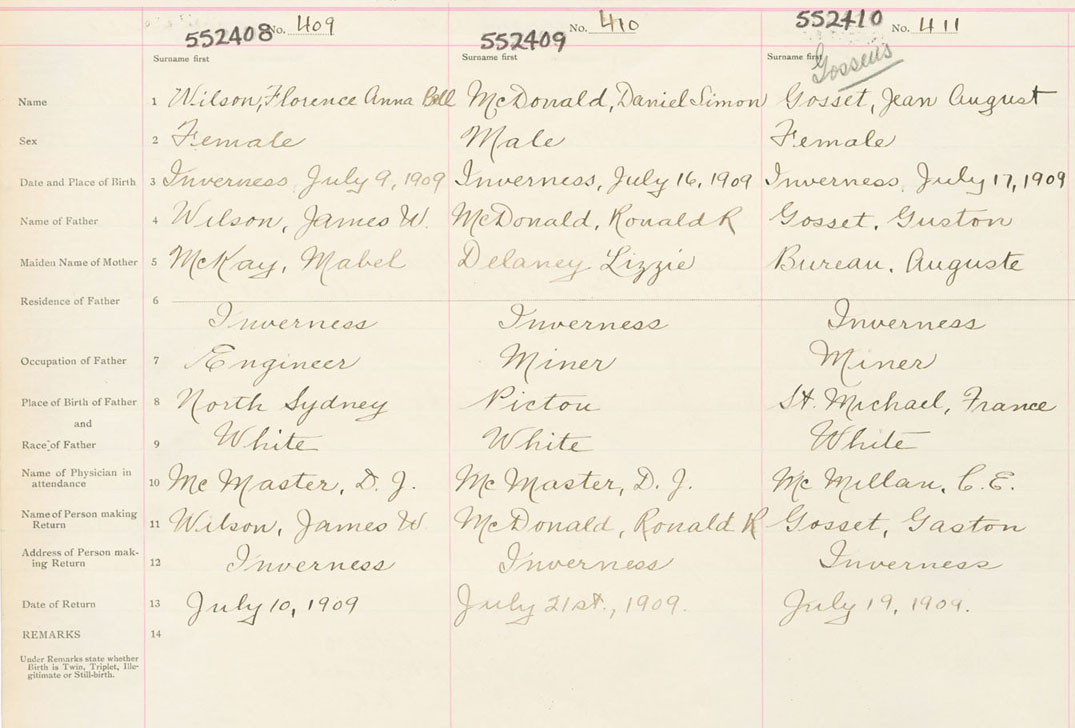 552408 No. 409 552409 No. 410 552410 No. 411
Surname first Surname first Surname first Gossens
Name 1 Wilson, Florence Anna Bell McDonald, Daniel Simon Gosset, Jean August
Sex 2 Female Male Female
Date and Place of Birth 3 Inverness, July 9, 1909 Inverness, July 16, 1909 Inverness, July 17, 1909
Name of Father 4 Wilson, James W. McDonald, Ronald R Gosset, Guston
Maiden Name of Mother 5 McKay, Mabel Delaney Lizzie Bureau, Auguste
Residence of Father 6
Inverness Inverness Inverness
Occupation of Father 7 Engineer Miner Miner
Place of Birth of Father 8 North Sydney Pictou St. Michael, France
and
Race of Father 9 White White White
Name of Physician in
attendance 10 Mc Master, D. J. Mc Master, D. J. Mc Millan, C. E.
Name of Person making
Return 11 Wilson, James W. McDonald, Ronald R Gosset, Gaston
Address of Person mak-
ing Return 12 Inverness Inverness Inverness
Date of Return 13 July 10, 1909 July 21st., 1909. July 19, 1909.
REMARKS 14
Under Remarks state whether
Birth is Twin, Triplet, Ille-
gitimate or Still-birth.